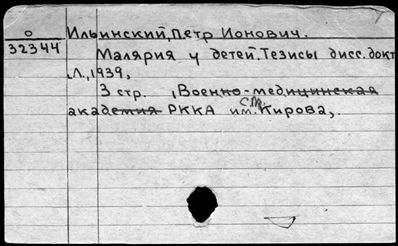 о Ильинский, Петр Ионович.
32344 Малярия у детей. Тезисы дисс. докт
Л., 1939,
3 стр. , Военно-медицинская
академия РККА им. С.М. Кирова,.